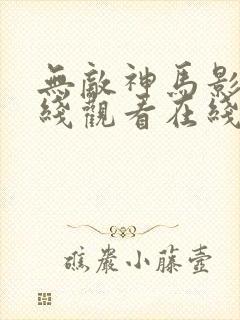 無敵神馬影
綫觀看在綫
礁巖小藤壺